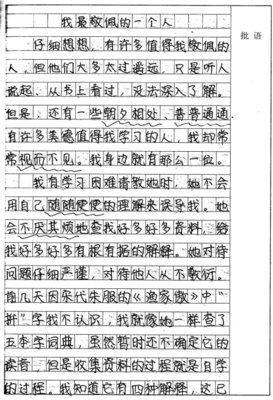 我最敬佩的一个人
批语
仔细想想，有许多值得我敬佩的
人，但他们大多太过遥远，只是听人
说起、从书上看过，没法深入了解。
但是，还有一些朝夕相处、普普通通、
有许多美德值得我学习的人，我却常
常视而不见。我身边就有那么一位。
我有学习困难请教她时，她不会
用自己随随便便的理解来误导我。她
会不厌其烦地查找好多好多资料，给
我好多好多有根有据的解释。她对待
问题仔细严谨，对待他人从不敷衍。
几天因宋代朱服的《渔家傲》中"
字我不认识，我就像她一样查了
五本字词典，虽然暂时还不确定它的
读音，但是收集资料的过程就是自学
的过程。我知道它有四种解释，这已